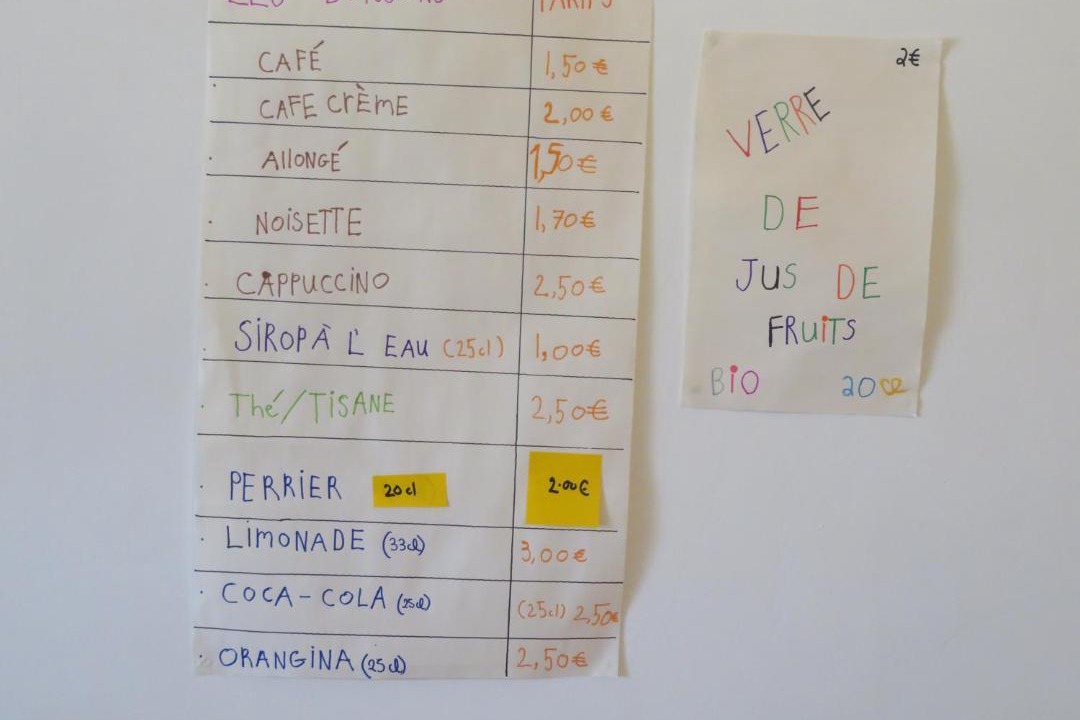 TARIFS
CAFÉ 1,50 €
CAFE CrÈME 2,00 €
AllONGÉ 1,50 €
NOiSETTE 1,70 €
CAPPUCCiNO 2,50 €
SiROP À L' EAU (25cl) 1,00 €
Thé/TiSANE 2,50 €
PERRiER 20cl 2.00 €
LiMONADE (33cl) 3,00 €
COCA-COLA (25cl) (25cl) 2,50€
ORANGiNA (25cl) 2,50 €
2€
VERRE
DE
JUS DE
FRUiTS
BiO 20cl